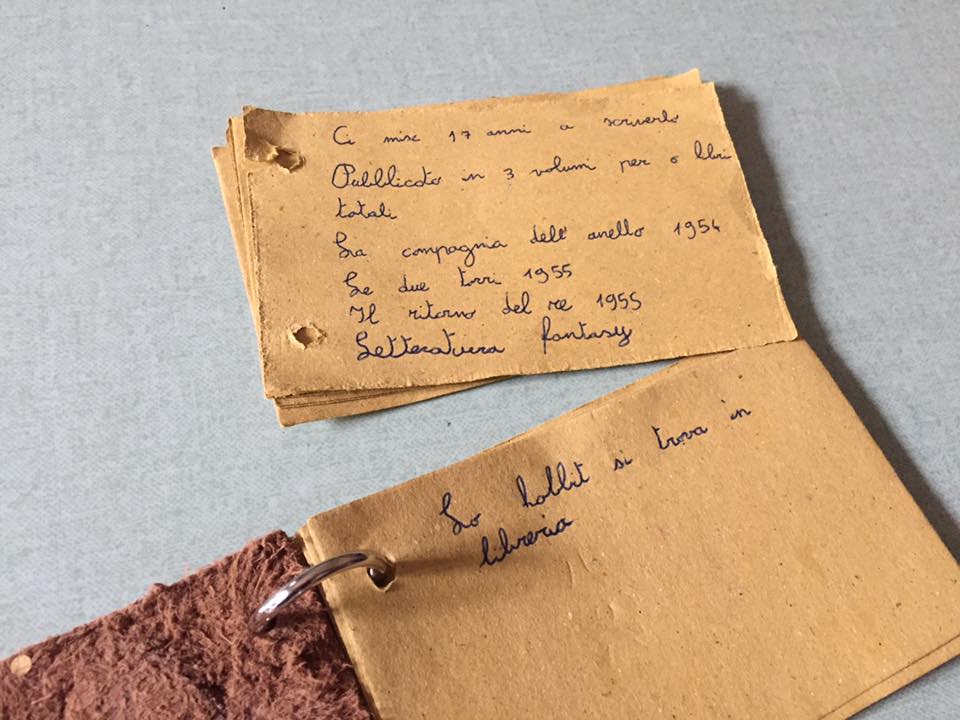 Ci mise 17 anni a scriverlo
Pubblicato in 3 volumi per 6 libri
totali
La compagnia dell' anello 1954
Le due torri 1955
Il ritorno del re 1955
Letteratura fantasy
Lo hobbit si trova in
libreria